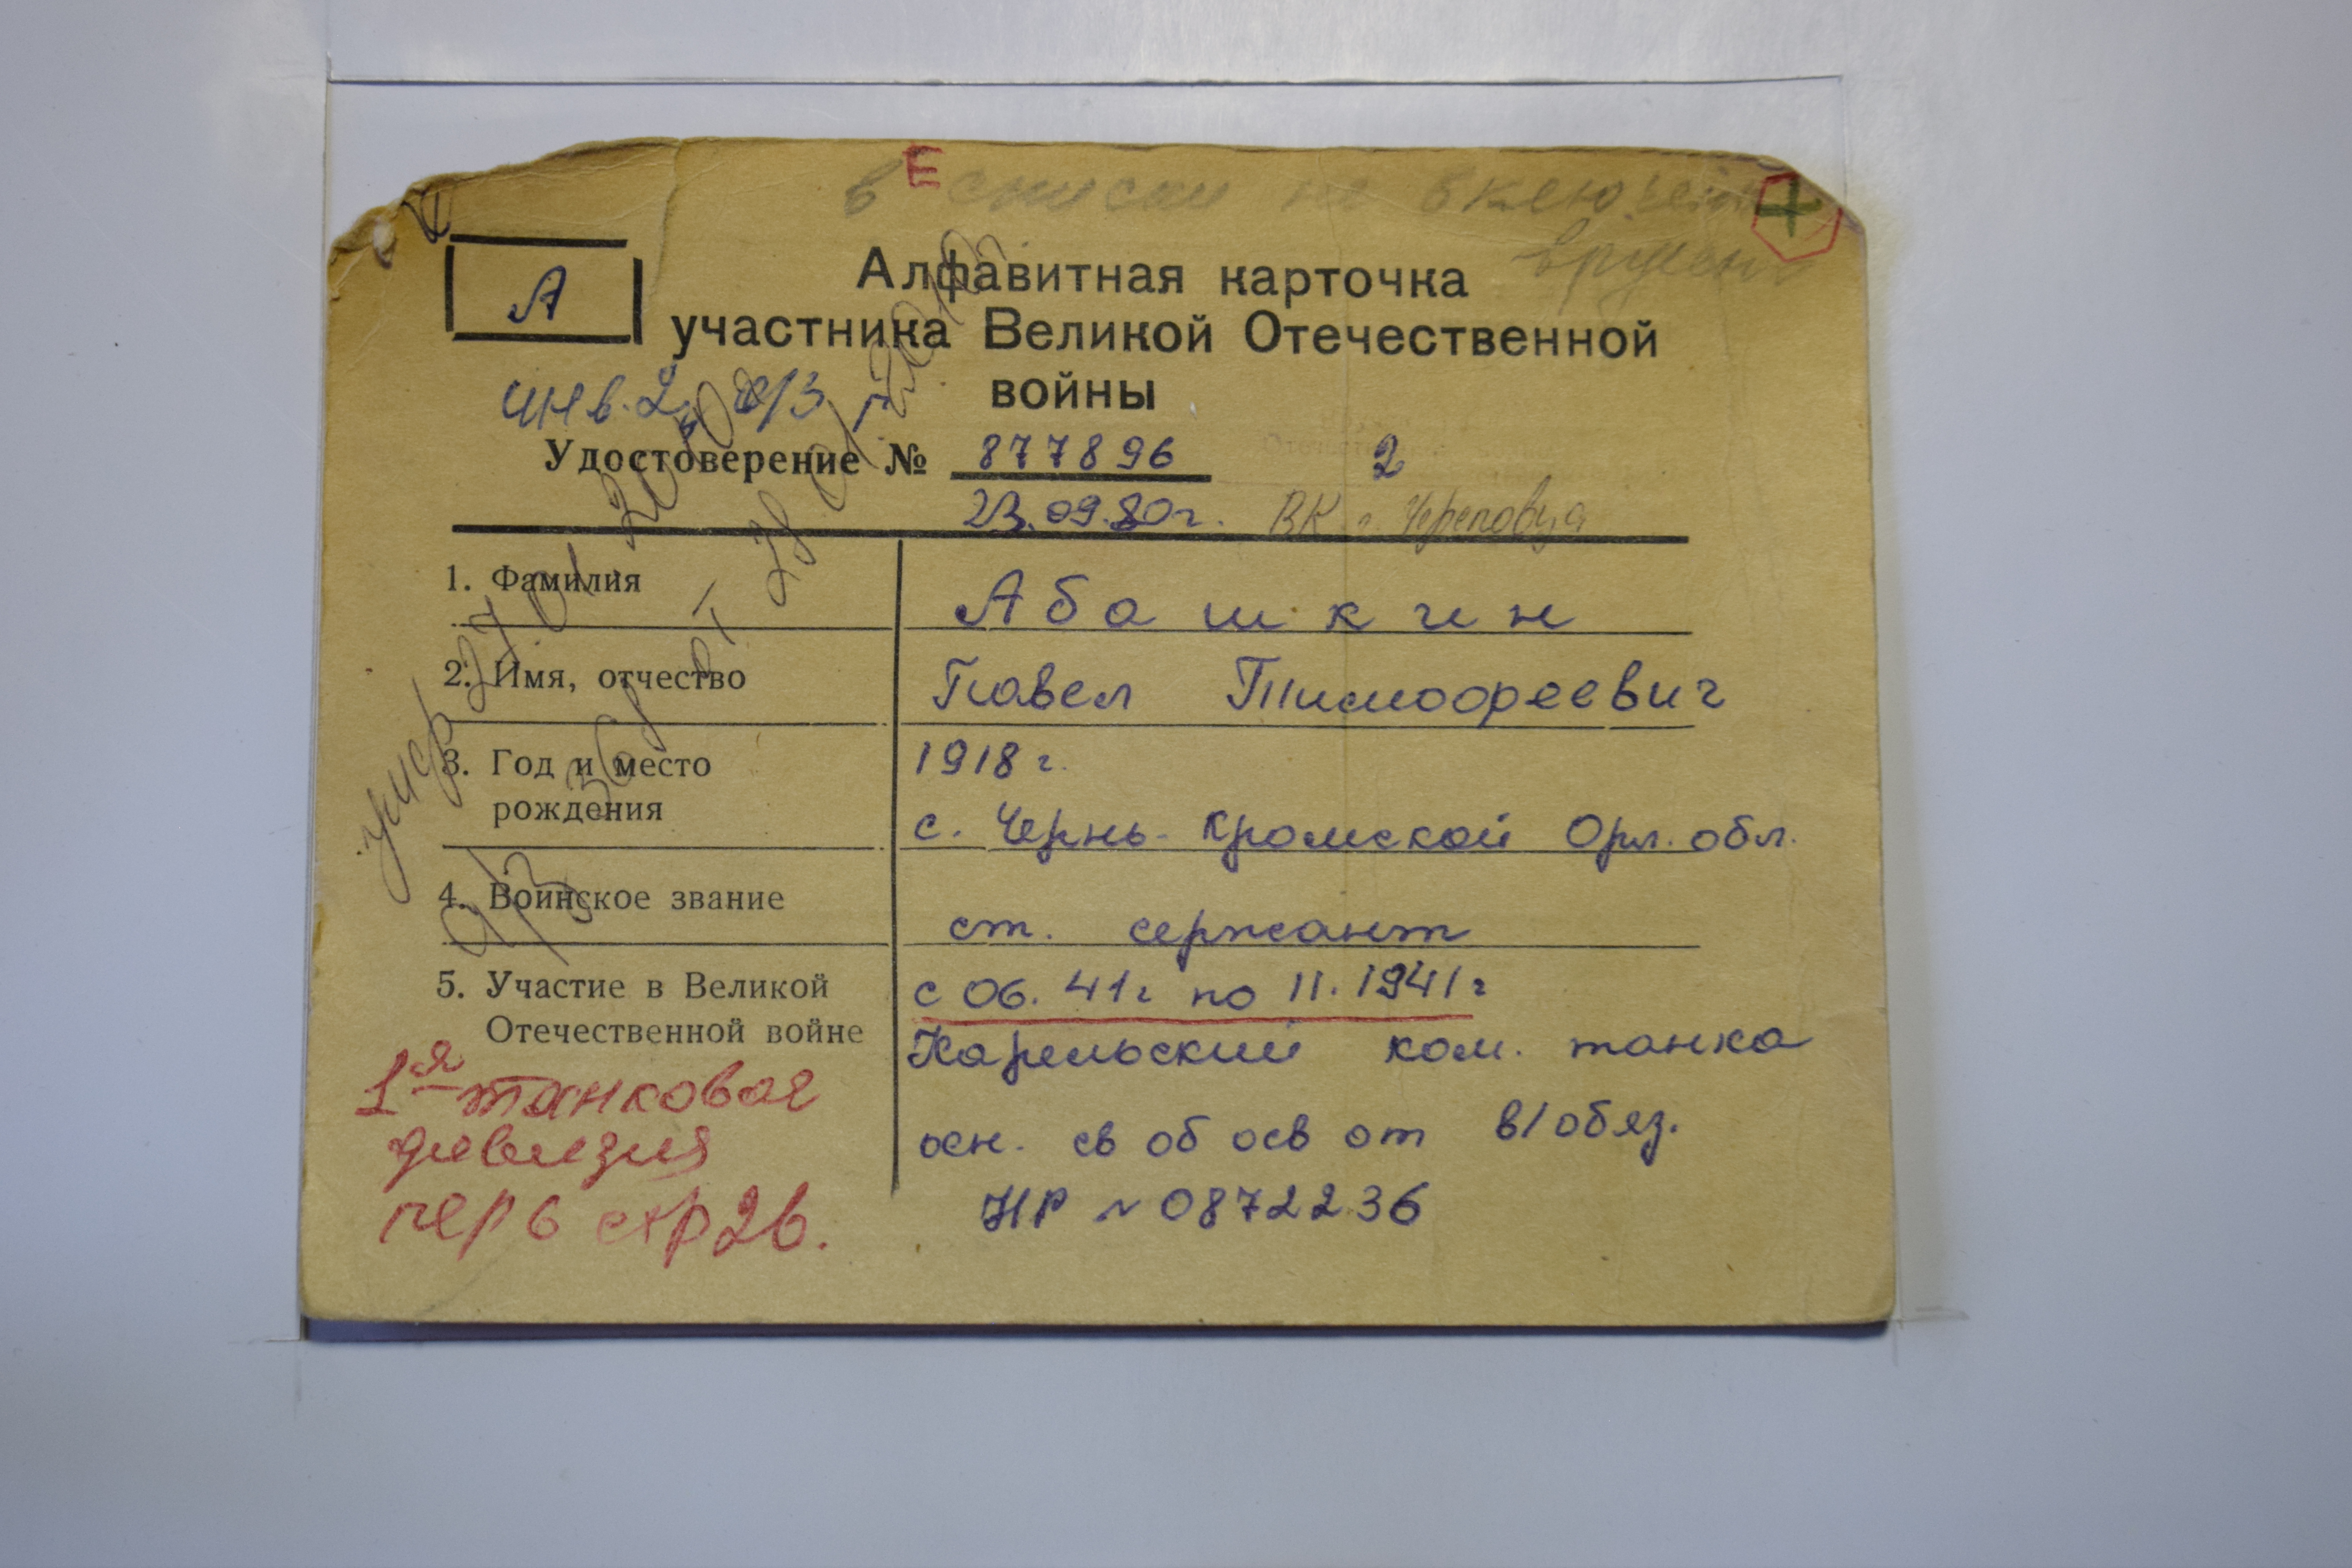 Е
в списки не включен
вручен
А
Алфавитная карточка
участника Великой Отечественной
войны
инв. 2
Удостоверение № 877896
2
23.09.80г. ВК г. Череповца
1. Фамилия
Абашкин
2. Имя, отчество
Павел Тимофреевич
3. Год и место
рождения
1918 г.
с. Чернь- Кромской Орл. обл.
4. Воинское звание
ст. сержант
5. Участие в Великой
Отечественной войне
с 06. 41г по 11. 1941 г
Карельский ком. танка
осн. св об осв от в/обяз.
НР № 0872236
1я танковая
дивизия
пер 6 стр 26.
умер 27 01